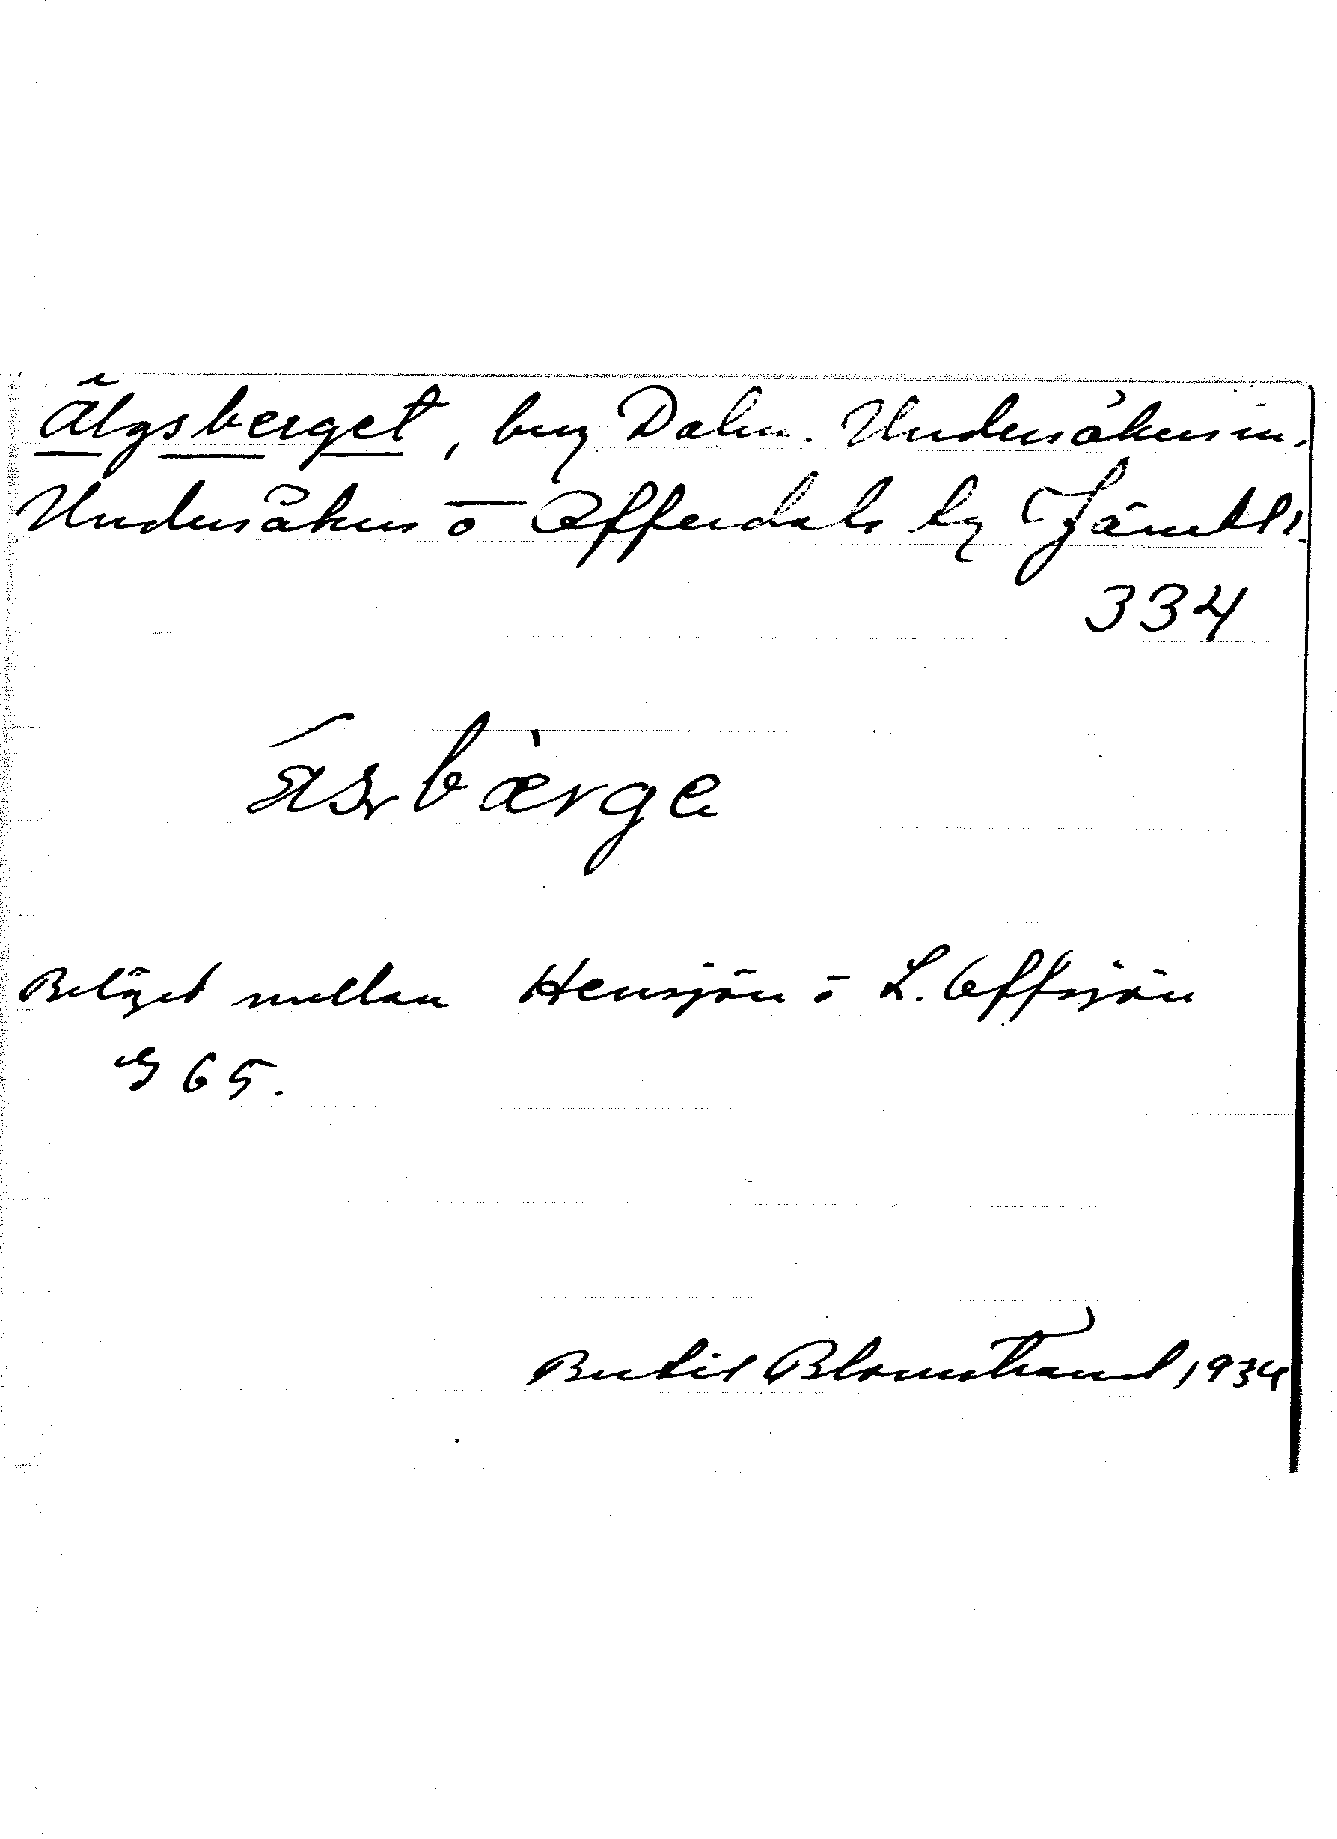 Älgsberget, berg Daln. Undersåkers sn.
Undersåkers o Offerdals tg Jämtl l.
334
bærge
Beläget mellan Hensjön o L. Offsjön
G 65.
Bertil Blomstrand 1934